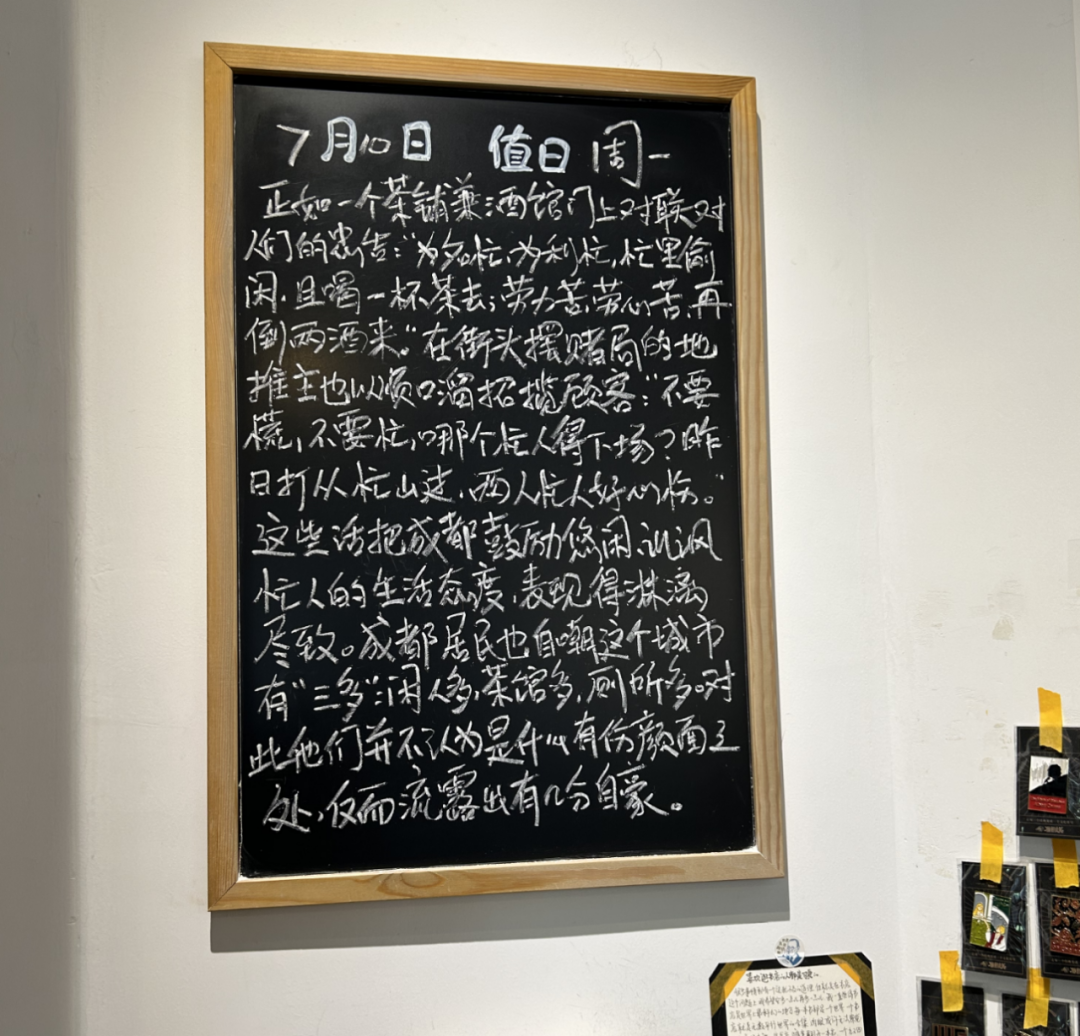 7月10日 值日 周一
正如一个茶铺兼酒馆门上对联对
人们的忠告:"为名忙,为利忙,忙里偷
闲,且喝一杯茶去;劳力苦,劳心苦,再
倒两酒来。"在街头摆赌局的地
摊主也以顺口溜招揽顾客:"不要
慌,不要忙,哪个忙人得下场?昨
日打从忙山过,两人忙人好心伤。"
这些话把成都鼓励悠闲、讥讽
忙人的生活态度,表现得淋漓
尽致。成都居民也自嘲这个城市
有"三多":闲人多,茶馆多,厕所多。对
此他们并不认为是什么有伤颜面之
处,反而流露出有几分自豪。